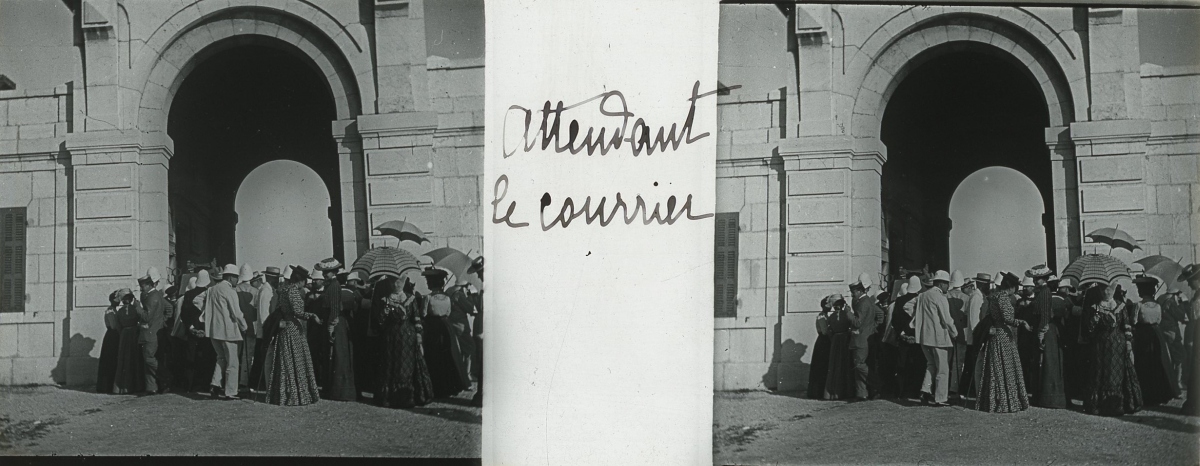 Attendant
le courrier